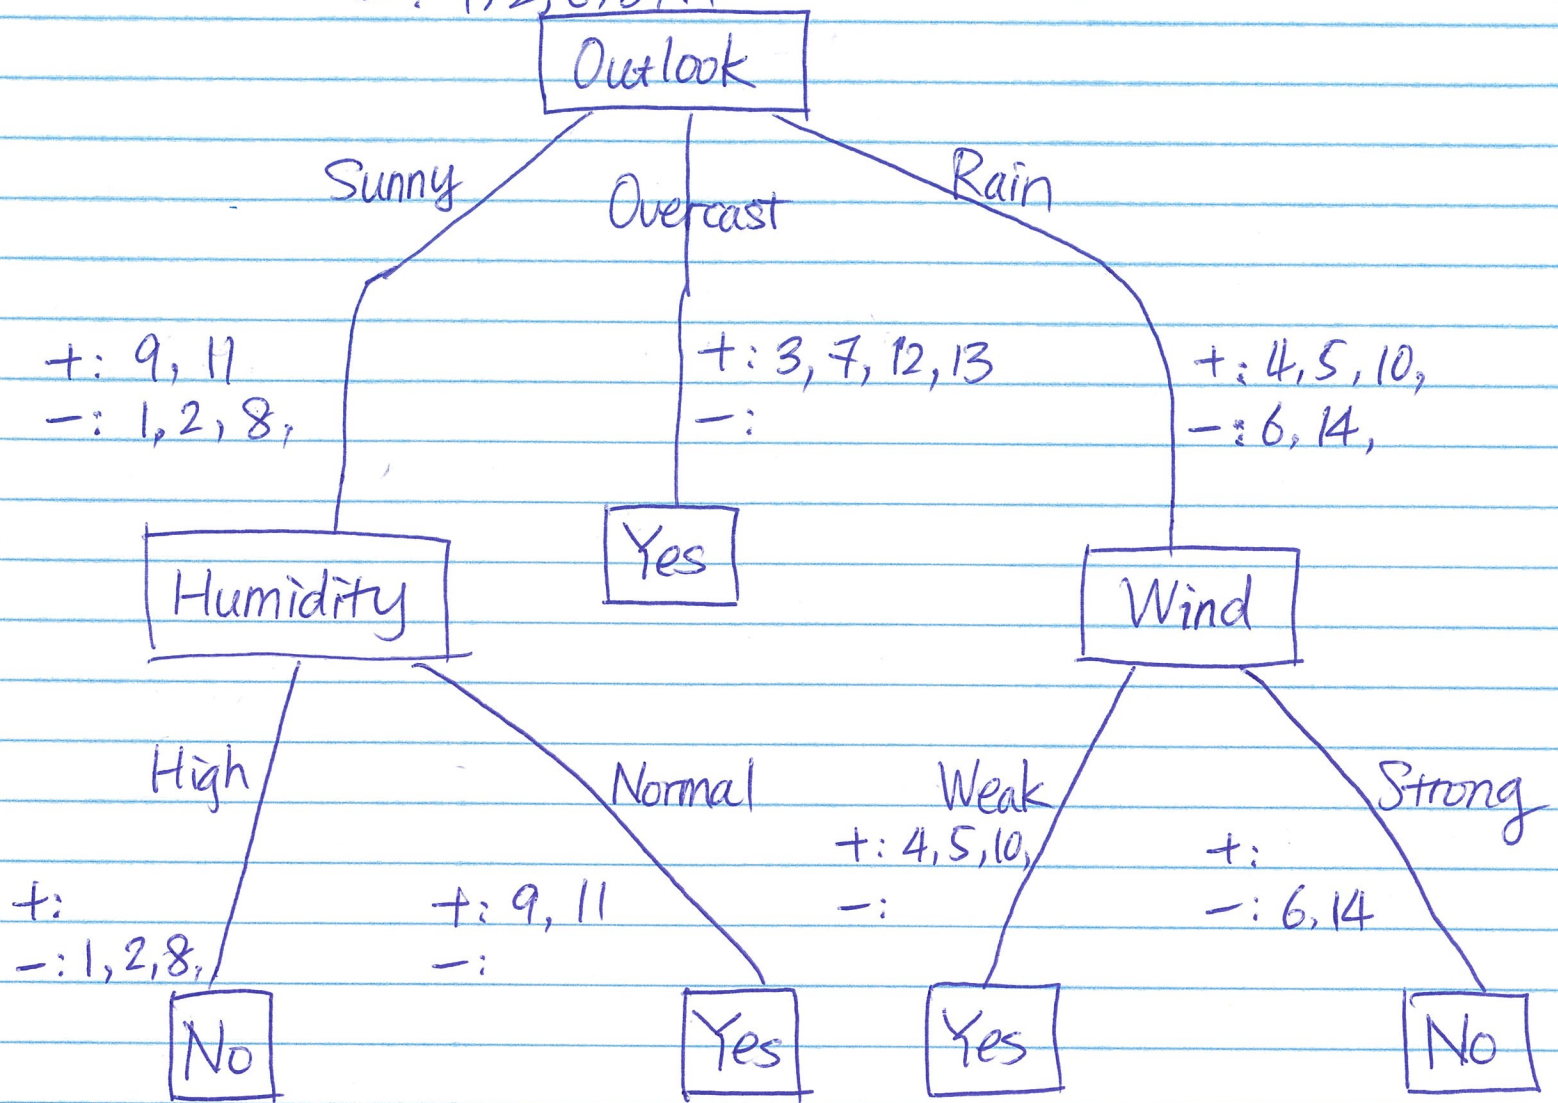 Outlook
Sunny
Overcast
Rain
+: 9, 11
-: 1, 2, 8,
+: 3, 7, 12, 13
-:
+: 4, 5, 10,
-: 6, 14,
Humidity
Yes
Wind
High
Normal
Weak
Strong
+:
-: 1, 2, 8,
+: 9, 11
-:
+: 4, 5, 10,
-:
+:
-: 6, 14
No
Yes
Yes
No